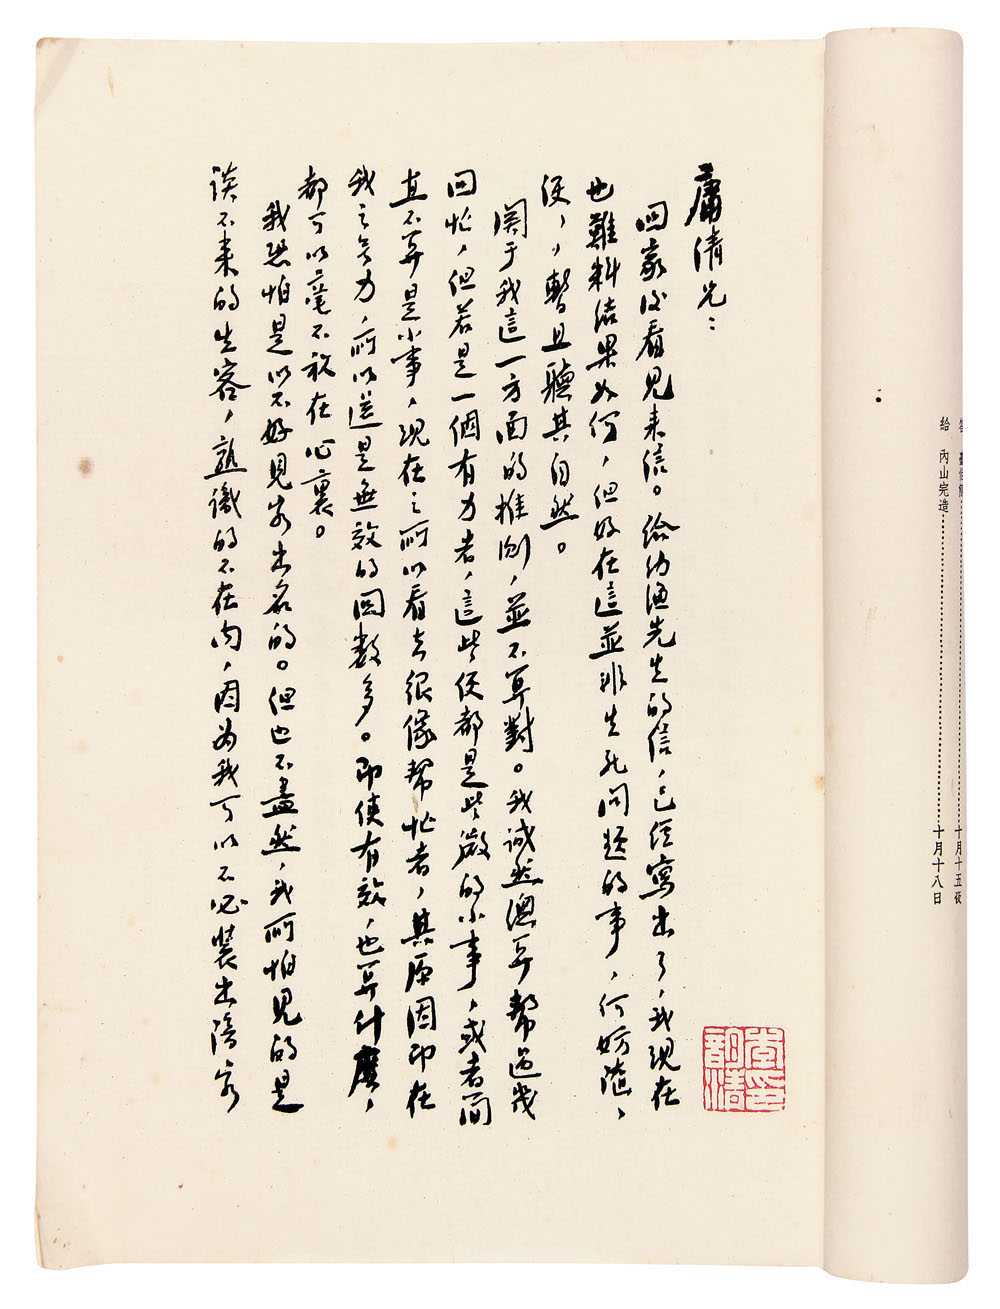 給 內山完造……十月十八日
庸倩兄：
回家後看見來信。給幼漁先生的信，已經寫出了，我現在
也難料結果如何，但好在這並非生死問題的事，何妨隨、
便、，暫且聽其自然。
関于我這一方面的推測，並不算對。我誠然總算幫過幾
回忙，但若是一個有力者，這些便都是些微的小事，或者簡
直不算是小事，現在之所以看去很像幫忙者，其原因即在
我之無力，所以還是無效的回數多。即使有效，也算什麼，
都可以毫不放在心裏。
我恐怕是以不好見客出名的。但也不盡然，我所怕見的是
談不來的生客，熟識的不在內，因為我可以不必裝出陪客